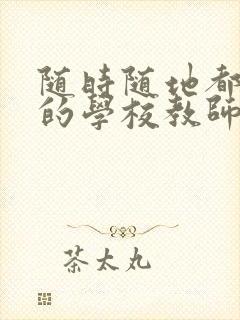 随時随地都
的學校教師
茶太丸